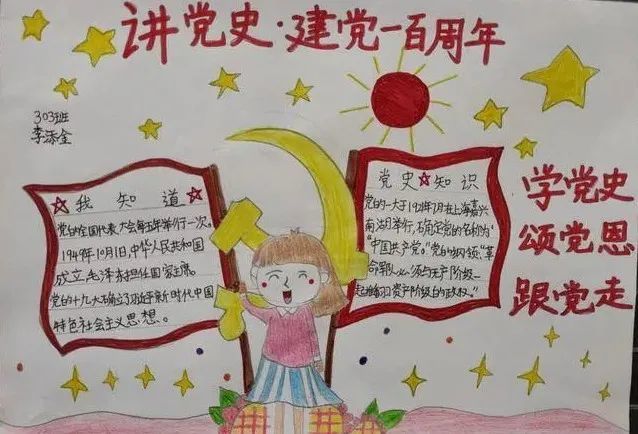 讲党史·建党一百周年
303班
李添金
我知道
党的全国代表大会每五年举行一次。
1949年10月1日,中华人民共和国
成立,毛泽东担任国家主席。
党的十九大确立习近平新时代中国
特色社会主义思想。
党史知识
党的一大于1921年7月在上海嘉兴
南湖举行,确定党的名称为
"中国共产党。"党的纲领:"革
命军队必须与无产阶级一
起推翻资产阶级的政权。"
学党史
颂党恩
跟党走